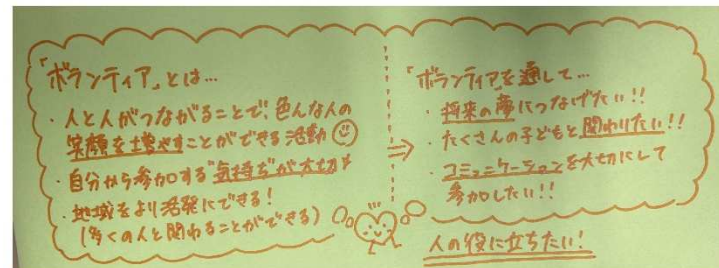 「ボランティア」とは…
・人と人がつながることで、色んな人の
笑顔を増やすことができる活動
・自分から参加する"気持ち"が大切
・地域をより活発にできる!
(多くの人と関わることができる)
⇒
「ボランティア」を通して…
・将来の夢につなげたい!!
・たくさんの子どもと関わりたい!!
・コミュニケーションを大切にして
参加したい!!
人の役に立ちたい!